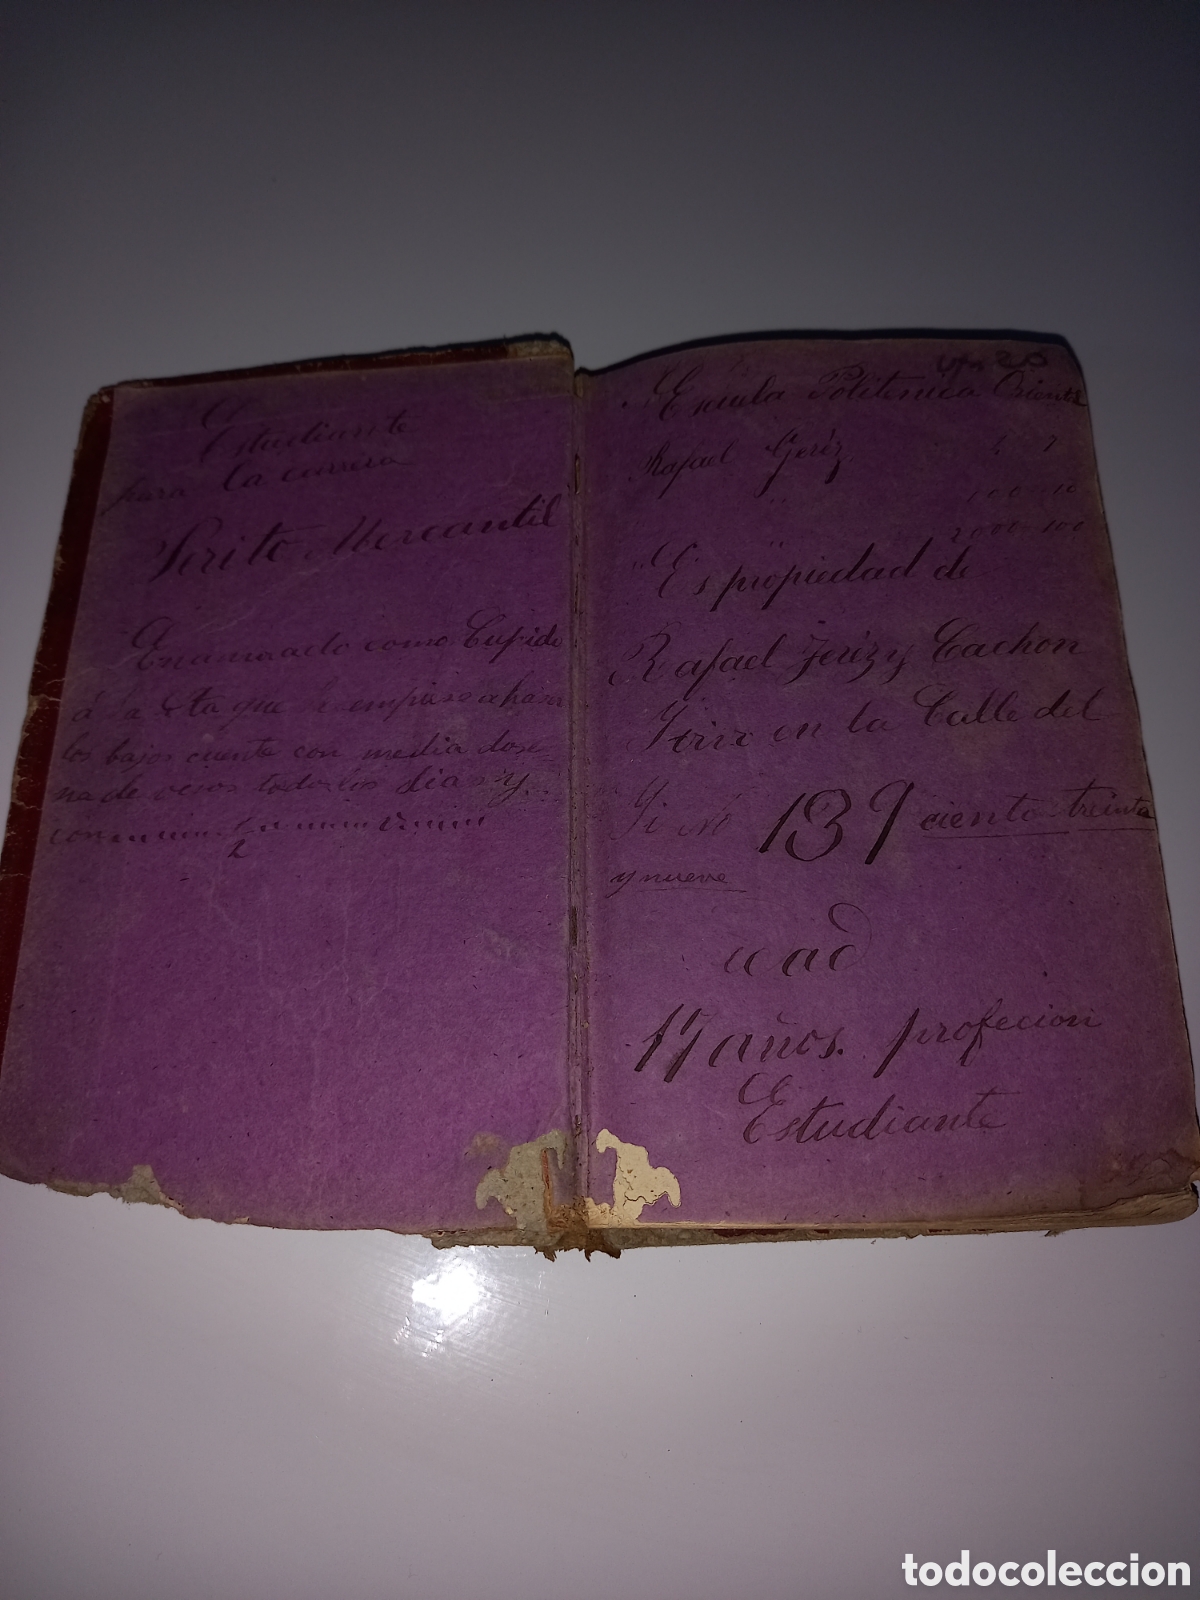 Estudiante
para la carrera
Perito Mercantil
Enamorado como Cupido
á la que le empiese ahaser
los bajos cuente con media dose-
na de vesos todos los dias y
con
20
Escuela Politenica Oriente
Rafael Geriz
2000 100
Es propiedad de
Rafael Jeriz y Cachon
en la Calle del
No 139 ciento treinta
y nueve
17 años. profecion
Estudiante
todocoleccion